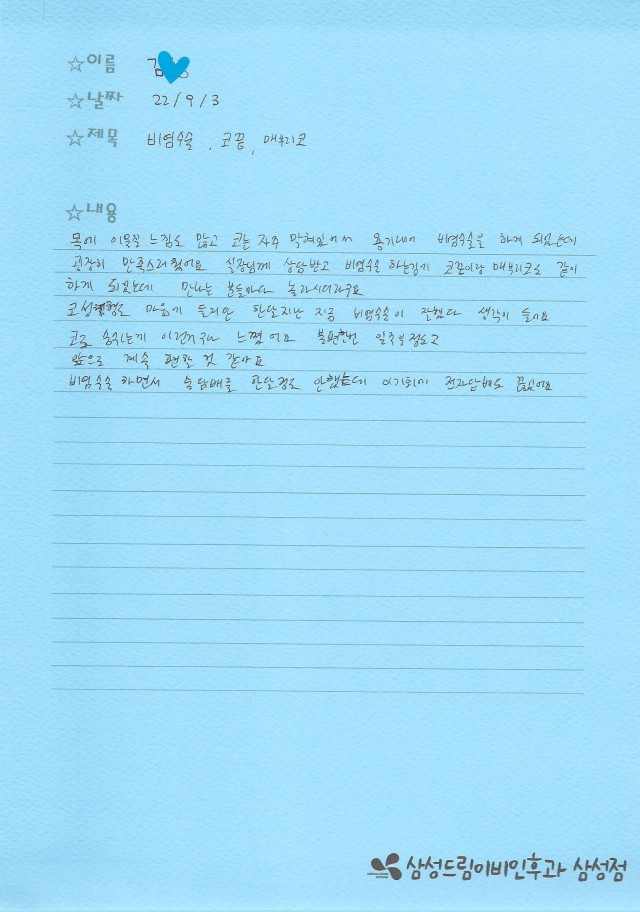 ☆이름 김
☆날짜 22/9/3
☆제목 비염수술, 코끝, 매부리코
☆내용
목에 이물질 느낌도 많고 코는 자주 막혀있어서 용기내어 비염수술을 하게 되었는데
굉장히 만족스러웠어요 실장님께 상담받고 비염수술 하는김에 코끝이랑 매부리코도 같이
하게 되었는데 만나는 분들마다 놀라시더라구요
코성형도 마음에 들지만 한달지난 지금 비염수술이 잘했다 생각이 들어요
코로 숨쉬는게 이런거구나 느꼈어요 불편한건 일주일정도고
앞으로 계속 편할 것 같아요
비염수술 하면서 술담배를 한달정도 안했는데 이기회에 전자담배도 끊었어요
삼성드림이비인후과 삼성점